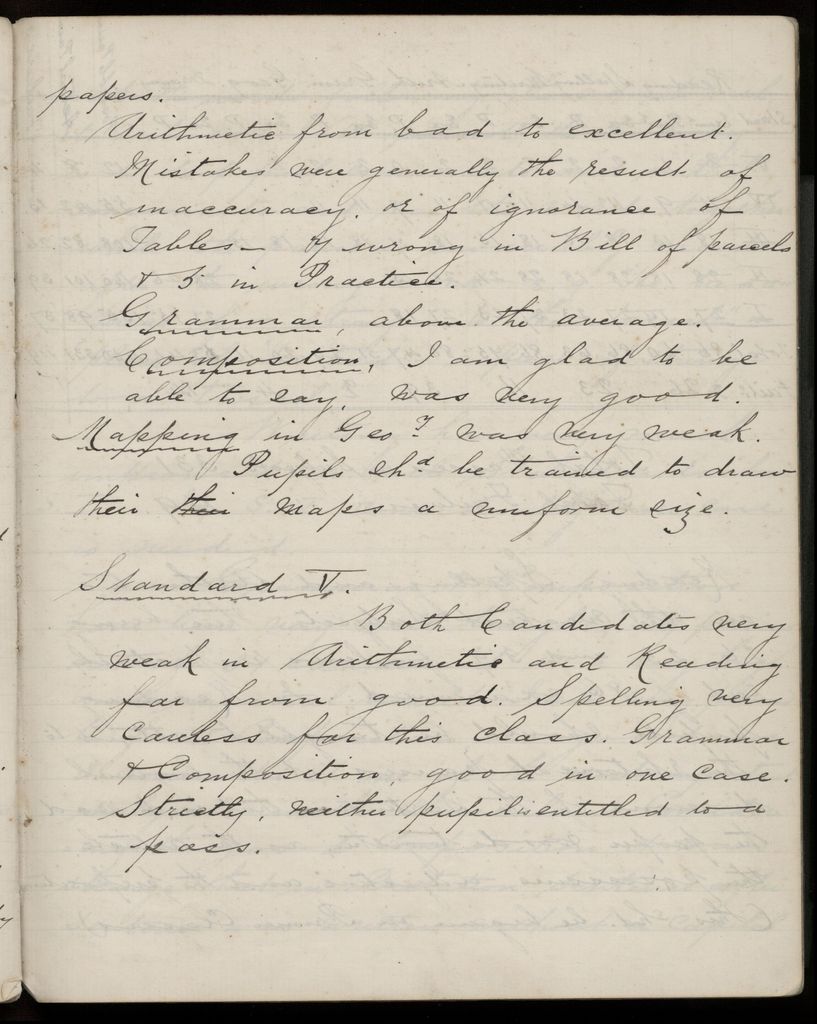 papers.
Arithmetic from bad to excellent.
Mistakes were generally the result of
inaccuracy. or of ignorance of
Tables — 7 wrong in Bill of parcels
& 5 in Practice.
Grammar, above the average.
Composition, I am glad to be
able to say, was very good.
Mapping in Geoy was very weak.
Pupils shd be trained to draw
their their maps a uniform size.
Standard V.
Both Candidates very
weak in Arithmetic and Reading
far from good. Spelling very
careless for this class. Grammar
& Composition, good in one case.
Strictly, neither pupil is entitled to a
pass.